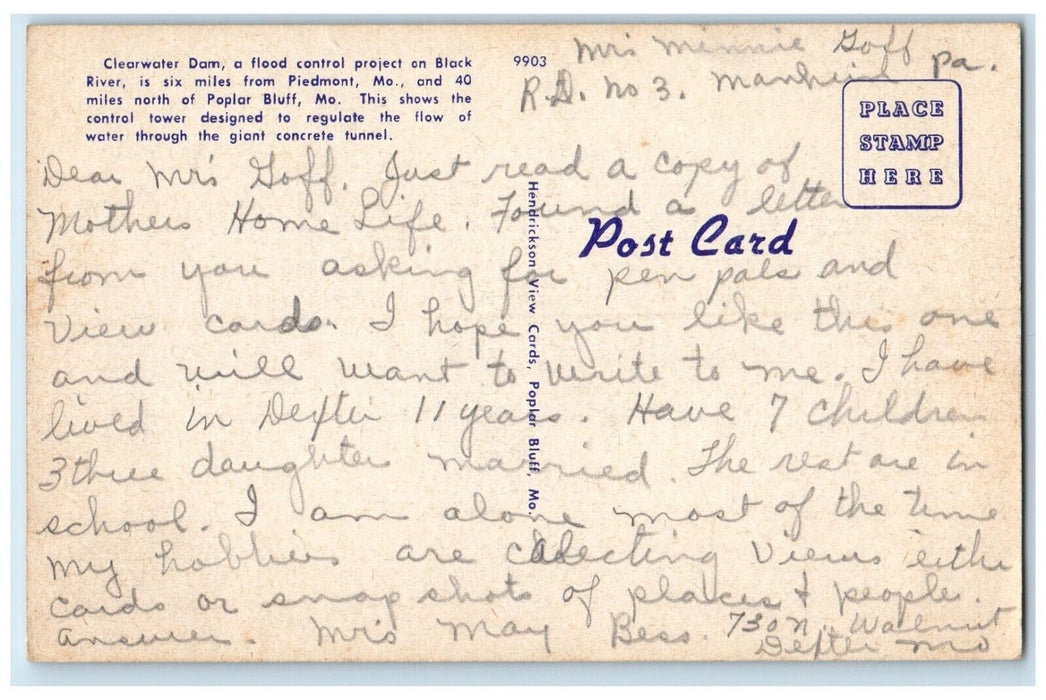 Clearwater Dam, a flood control project on Black
River, is six miles from Piedmont, Mo., and 40
miles north of Poplar Bluff, Mo. This shows the
control tower designed to regulate the flow of
water through the giant concrete tunnel.
9903
Mrs Minnie Goff
R.D. No 3. Manheim Pa.
PLACE
STAMP
HERE
Post Card
Hendrickson View Cards, Poplar Bluff, Mo.
Dear Mrs Goff. Just read a copy of
Mothers Home Life. Found a letter
from you asking for pen pals and
View cards. I hope you like this one
and will want to write to me. I have
lived in Dexter 11 years. Have 7 children
3 three daughters married. The rest are in
school. I am alone most of the time
my hobbies are collecting Views either
cards or snap shots of places & people.
answer. Mrs May Bess. 730 N. Walnut
Dexter Mo